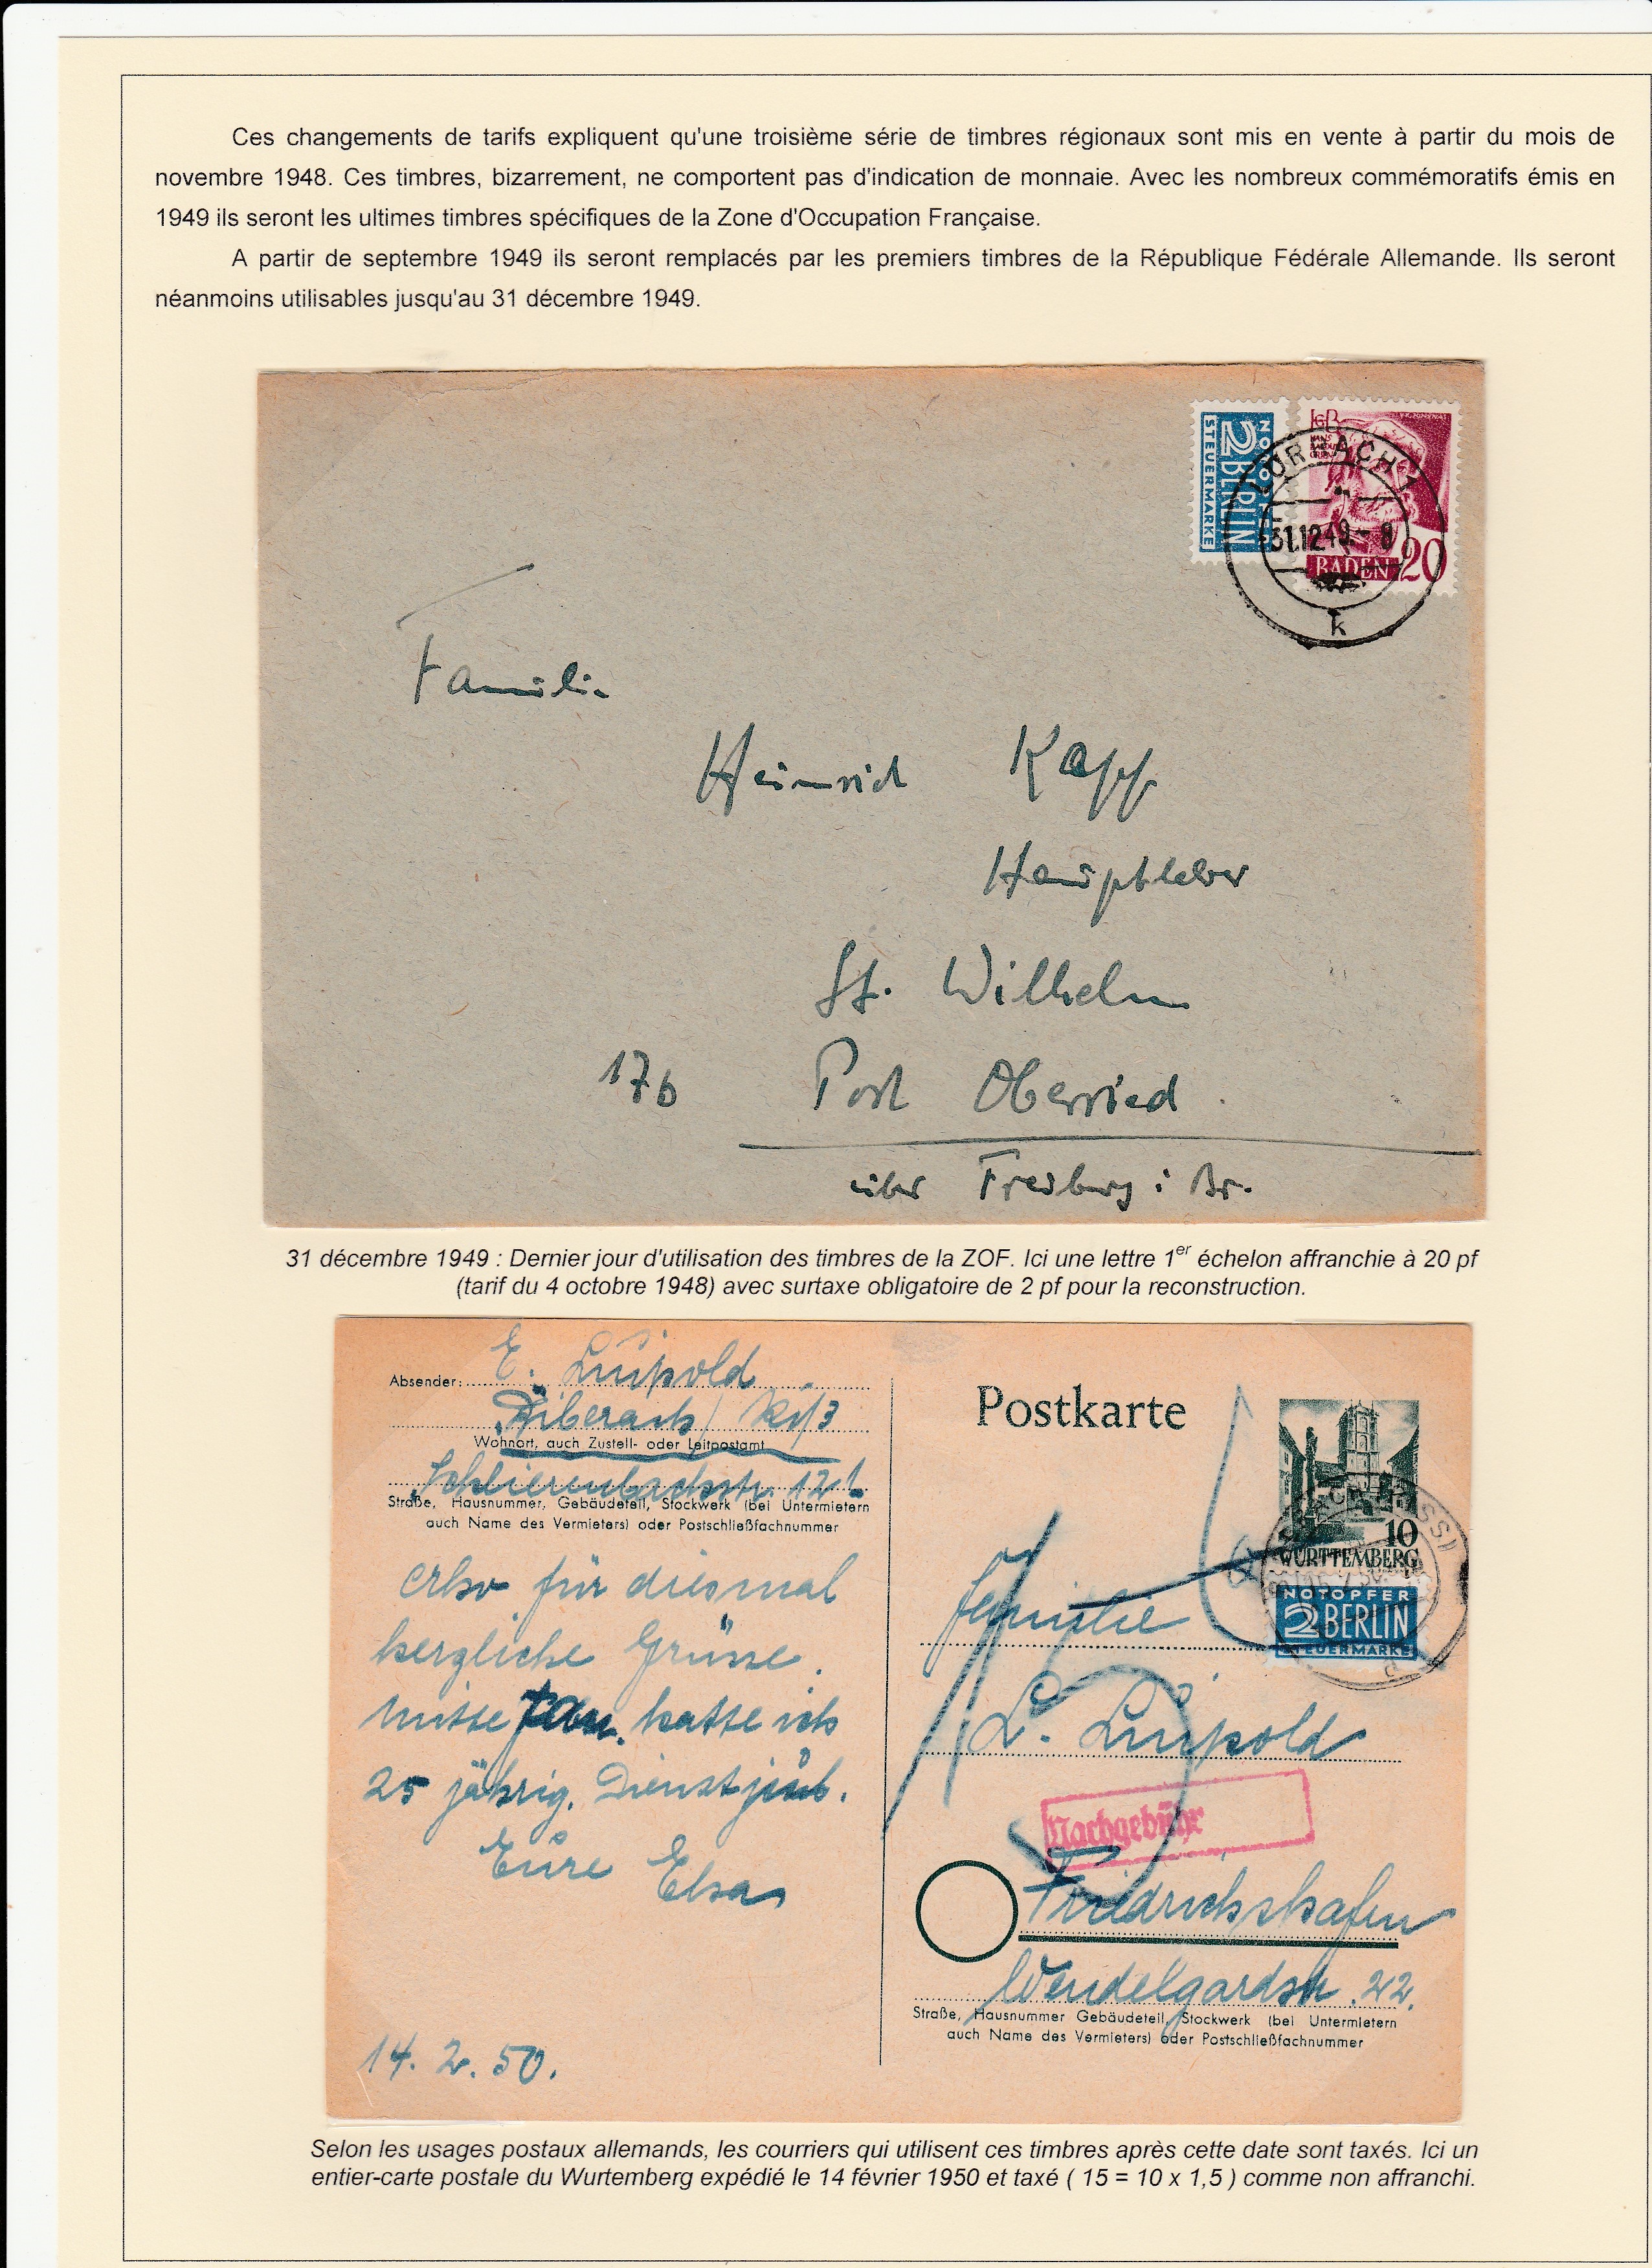 Ces changements de tarifs expliquent qu'une troisième série de timbres régionaux sont mis en vente à partir du mois de
novembre 1948. Ces timbres, bizarrement, ne comportent pas d'indication de monnaie. Avec les nombreux commémoratifs émis en
1949 ils seront les ultimes timbres spécifiques de la Zone d'Occupation Française.
A partir de septembre 1949 ils seront remplacés par les premiers timbres de la République Fédérale Allemande. Ils seront
néanmoins utilisables jusqu'au 31 décembre 1949.
NOTOPFER
2 BERLIN
STEUERMARKE
LÖRRACH 1
31.12.49.- 8
k
BADEN 20
Familie
Heinrich Kapp
Hauptlehrer
St. Wilhelm
17b Post Oberried
über Freiburg i. Br.
31 décembre 1949 : Dernier jour d'utilisation des timbres de la ZOF. Ici une lettre 1er échelon affranchie à 20 pf
(tarif du 4 octobre 1948) avec surtaxe obligatoire de 2 pf pour la reconstruction.
Absender: E. Luipold
Biberach/ Riß
Wohnort, auch Zustell- oder Leitpostamt
Schlierenbachstr. 12
Straße, Hausnummer, Gebäudeteil, Stockwerk (bei Untermietern
auch Name des Vermieters) oder Postschließfachnummer
für diesmal
herzliche Grüsse.
Mitte Jan. hatte ich
25 jährig. Dienstjub.
Eure Elsa
14. 2. 50.
Postkarte
10
WÜRTTEMBERG
NOTOPFER
2 BERLIN
STEUERMARKE
Familie
L. Luipold
15
Nachgebühr
Friedrichshafen
Wendelgardstr. 22.
Straße, Hausnummer Gebäudeteil, Stockwerk (bei Untermietern
auch Name des Vermieters) oder Postschließfachnummer
Selon les usages postaux allemands, les courriers qui utilisent ces timbres après cette date sont taxés. Ici un
entier-carte postale du Wurtemberg expédié le 14 février 1950 et taxé ( 15 = 10 x 1,5 ) comme non affranchi.